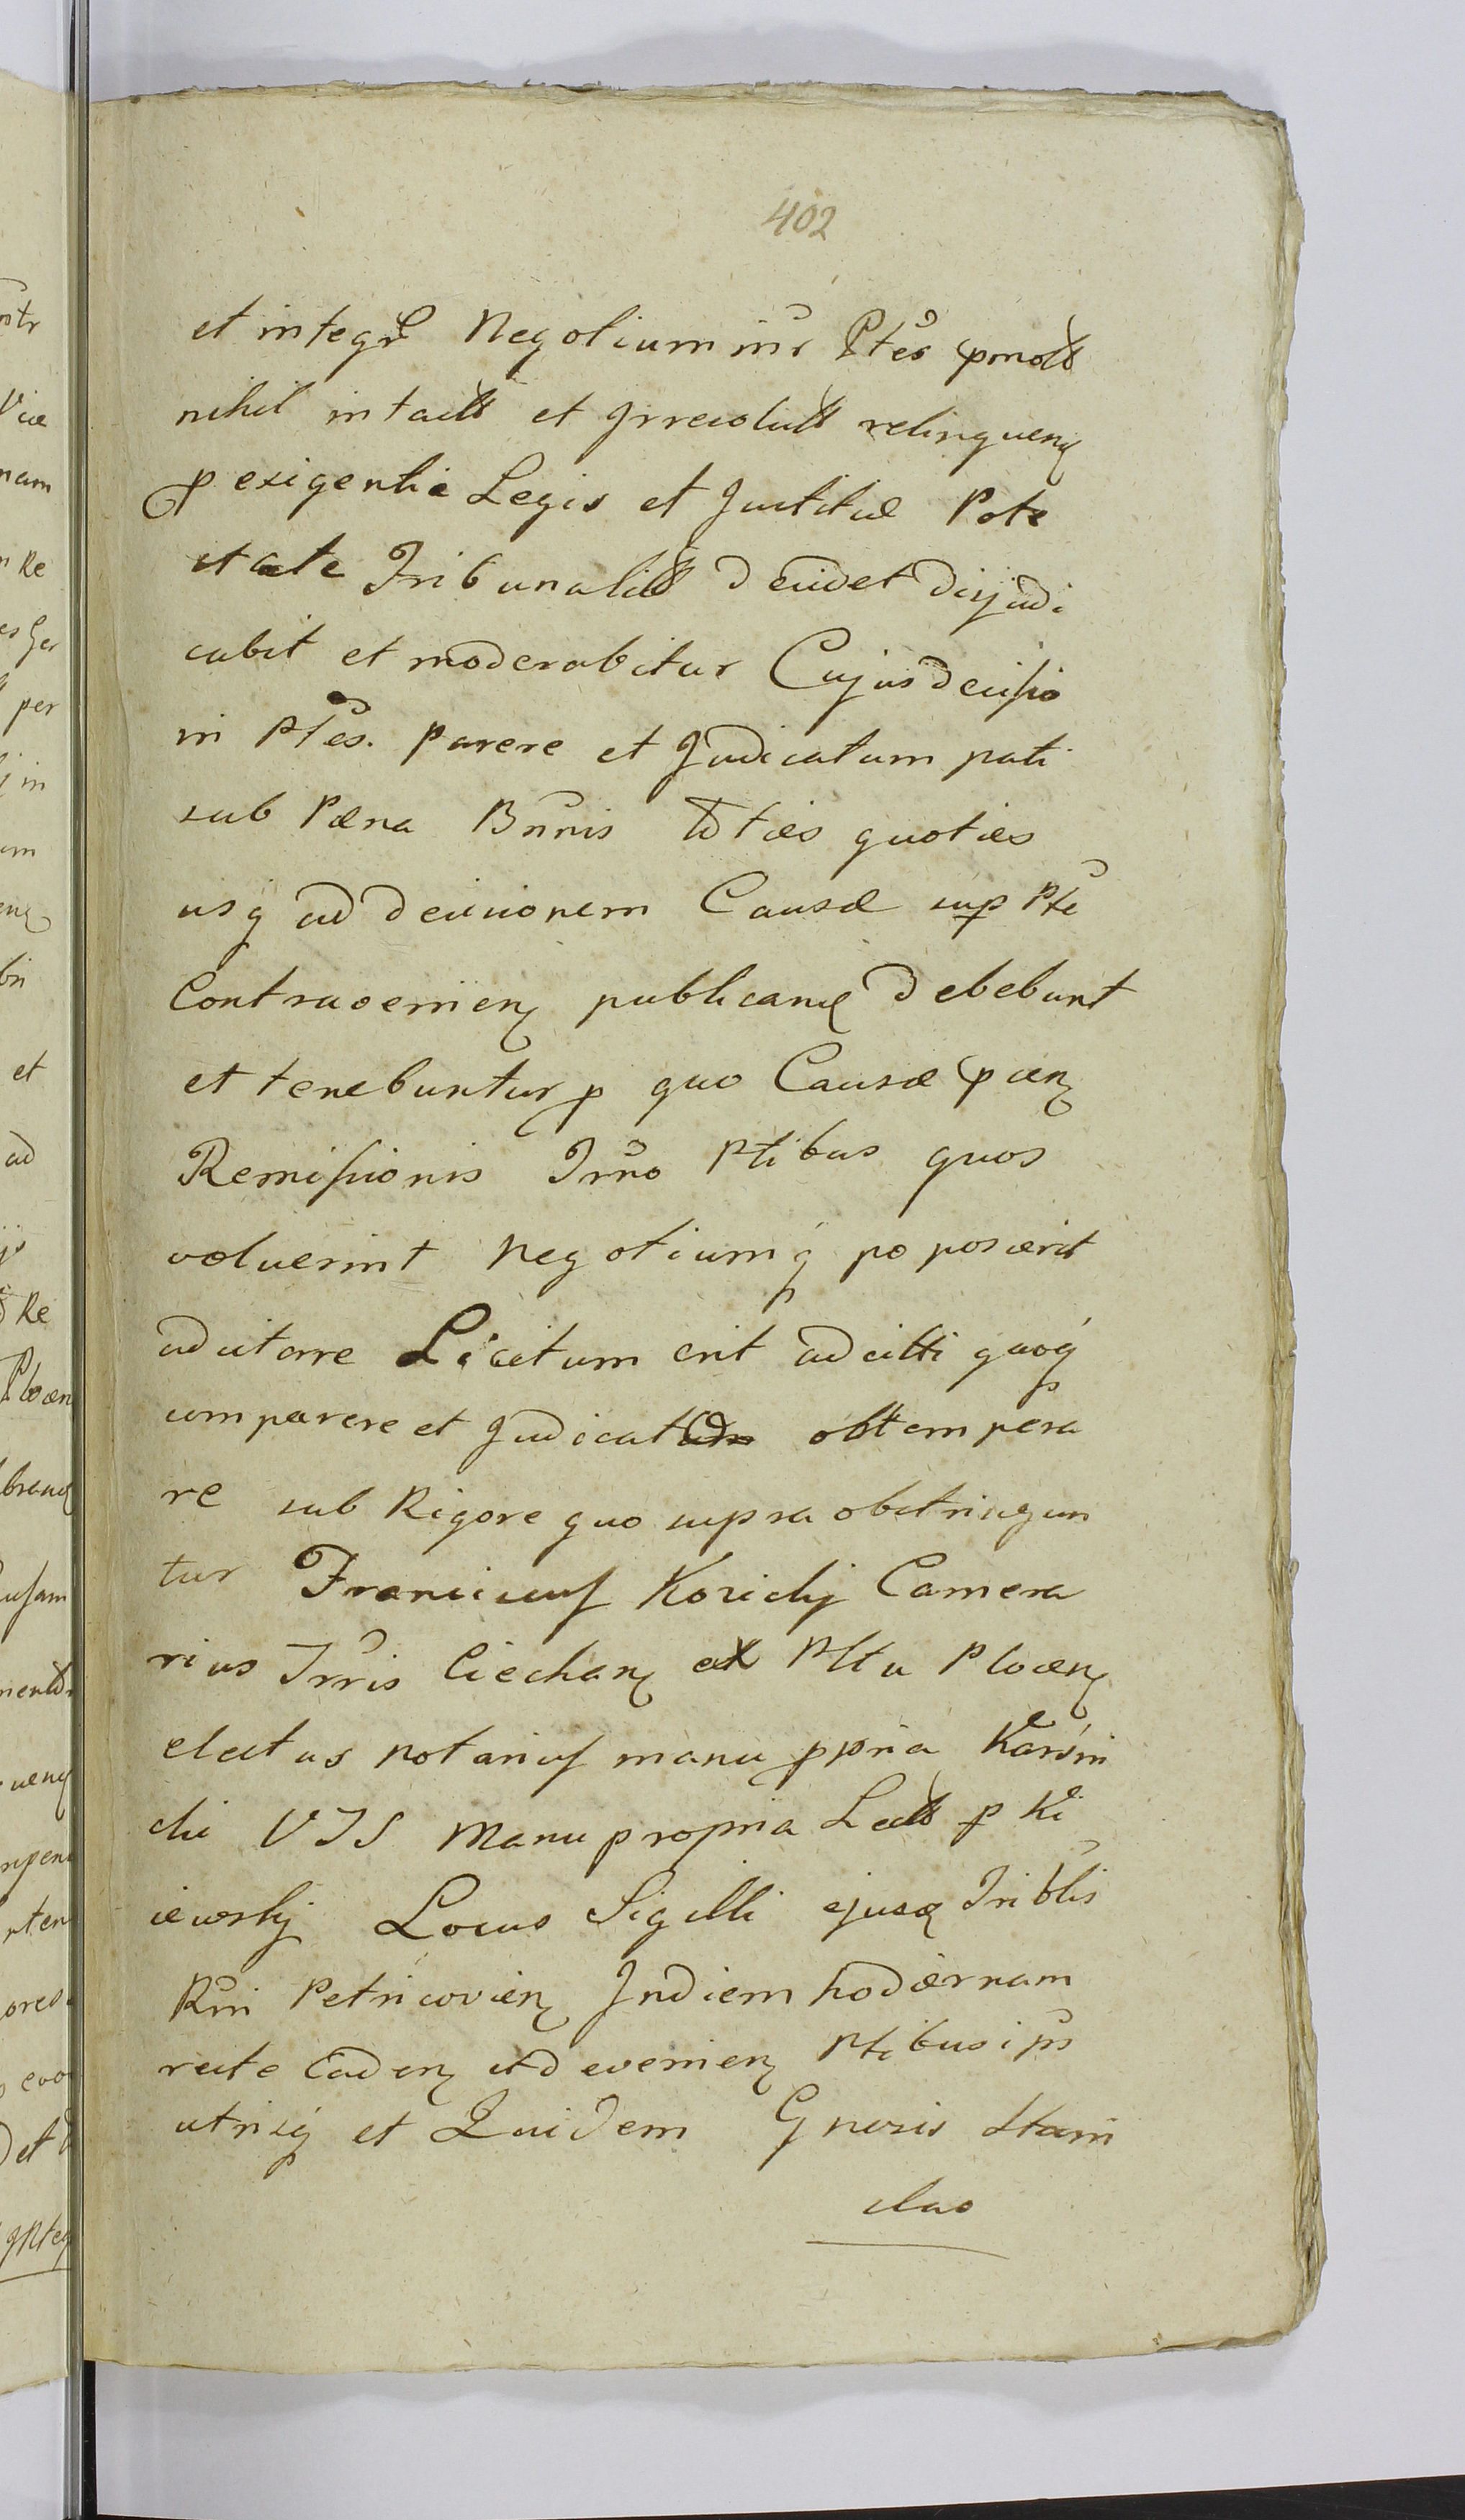 402
et integr Negotium inr Ptes pmott
nihil intactt et Irresolutt relinquenq
p exigentia Legis et Justitiæ Pote
state Tribunalitt decidet disjudi
cabit et moderabitur Cujus decisio
ni Ptes. parere et Judicatum pati
sub Pæna Bnnis toties quoties
usq ad decisionem Causæ sup Pte
Contravenienq publicand debebunt
et tenebuntur p quo Causæ pcenq
Remissionis Trno Ptibus quos
voluerint Negotiumq poposcerit
adcitare Licitum erit adcitti quoq
comparere et Judicato obtempera
re sub Rigore quo supra obstringun
tur Franciscus Kozicky Camera
rius Trris Ciechanq ex Pltu Plocenq
electus notarius manu ppria Karśni
cki VJS Manu propria Lectt p Ki
iewsky Locus Sigilli ejusd Triblis
Rni Petricovienq In diem hodiernam
recte Cadenq et devenienq Ptibus ips
utrisq et Quidem Gnosis Stani
slao